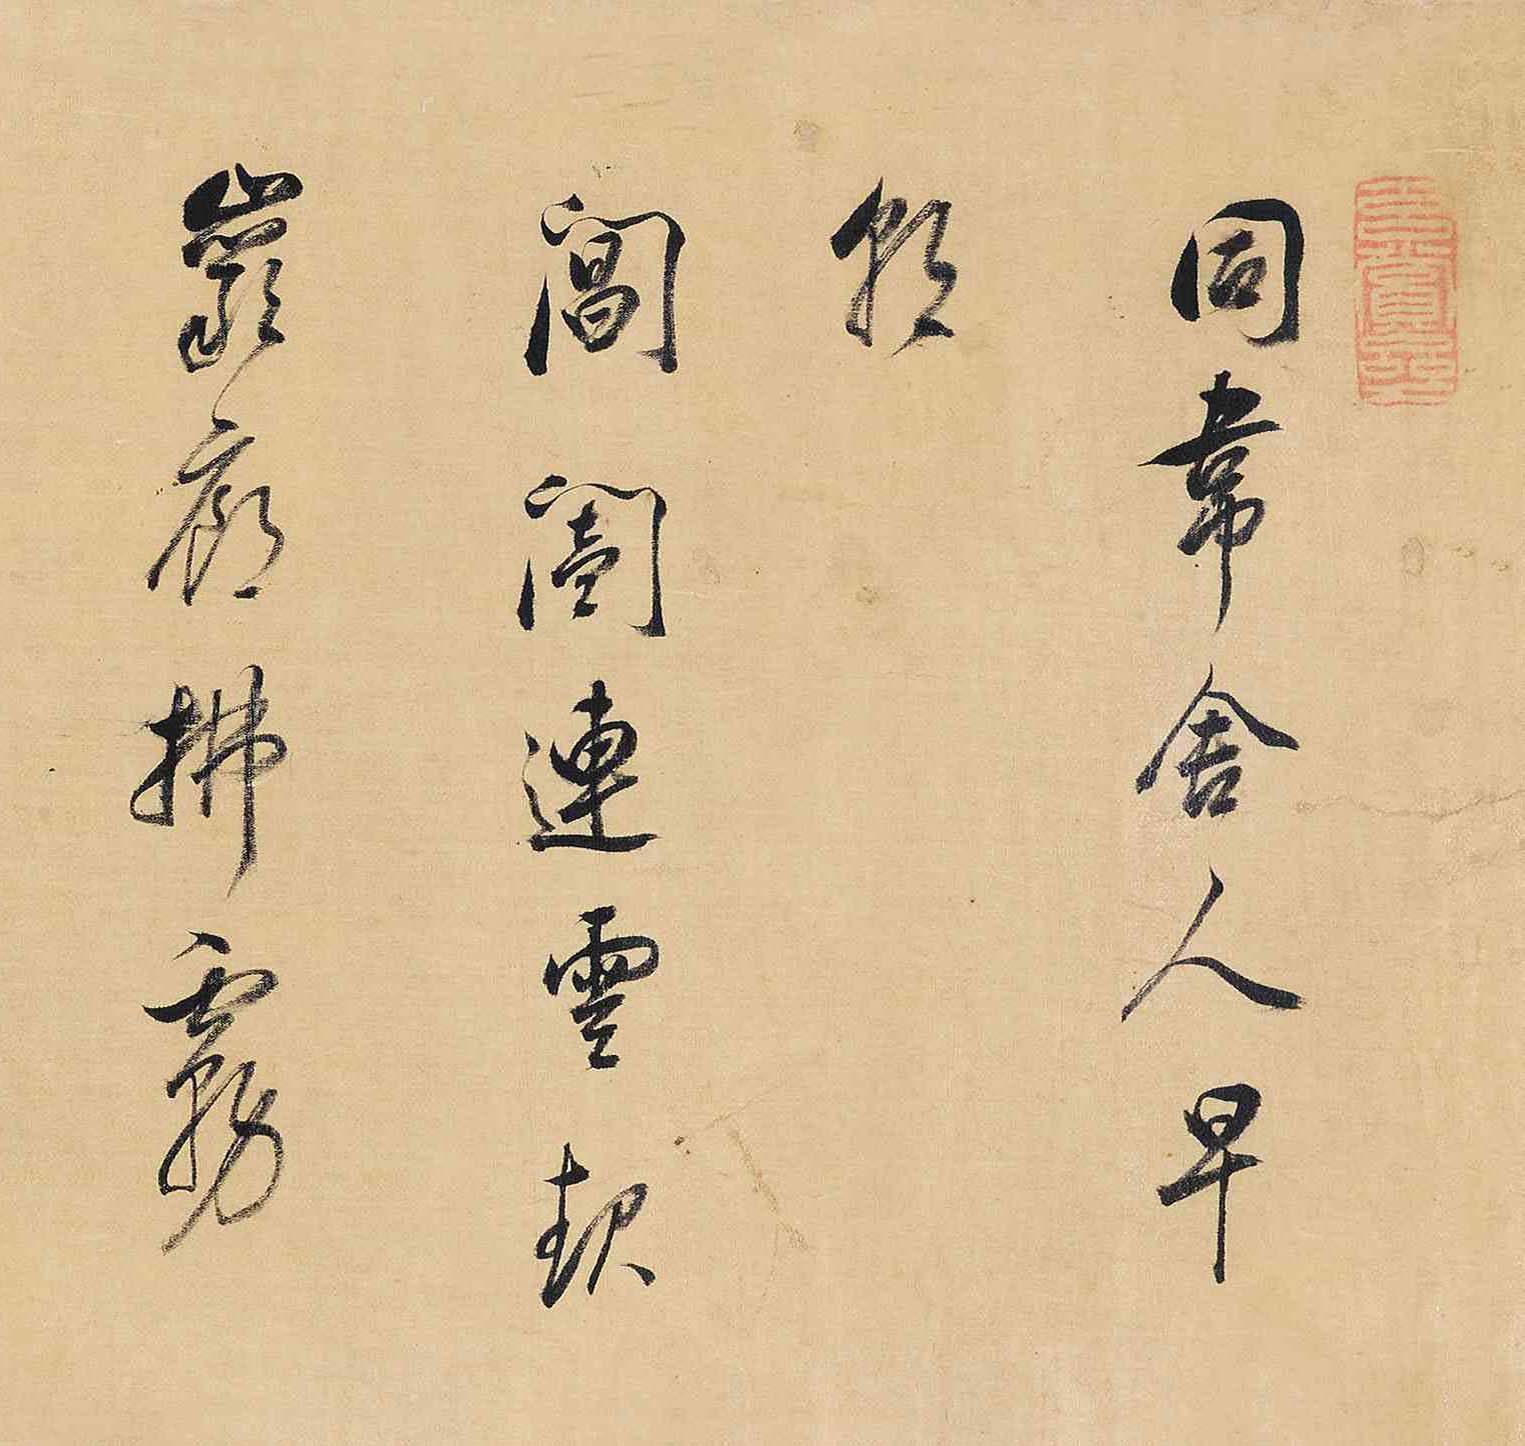 玄賞齋
同韋舍人早
朝
閶闔連雲起
巖廊拂霧